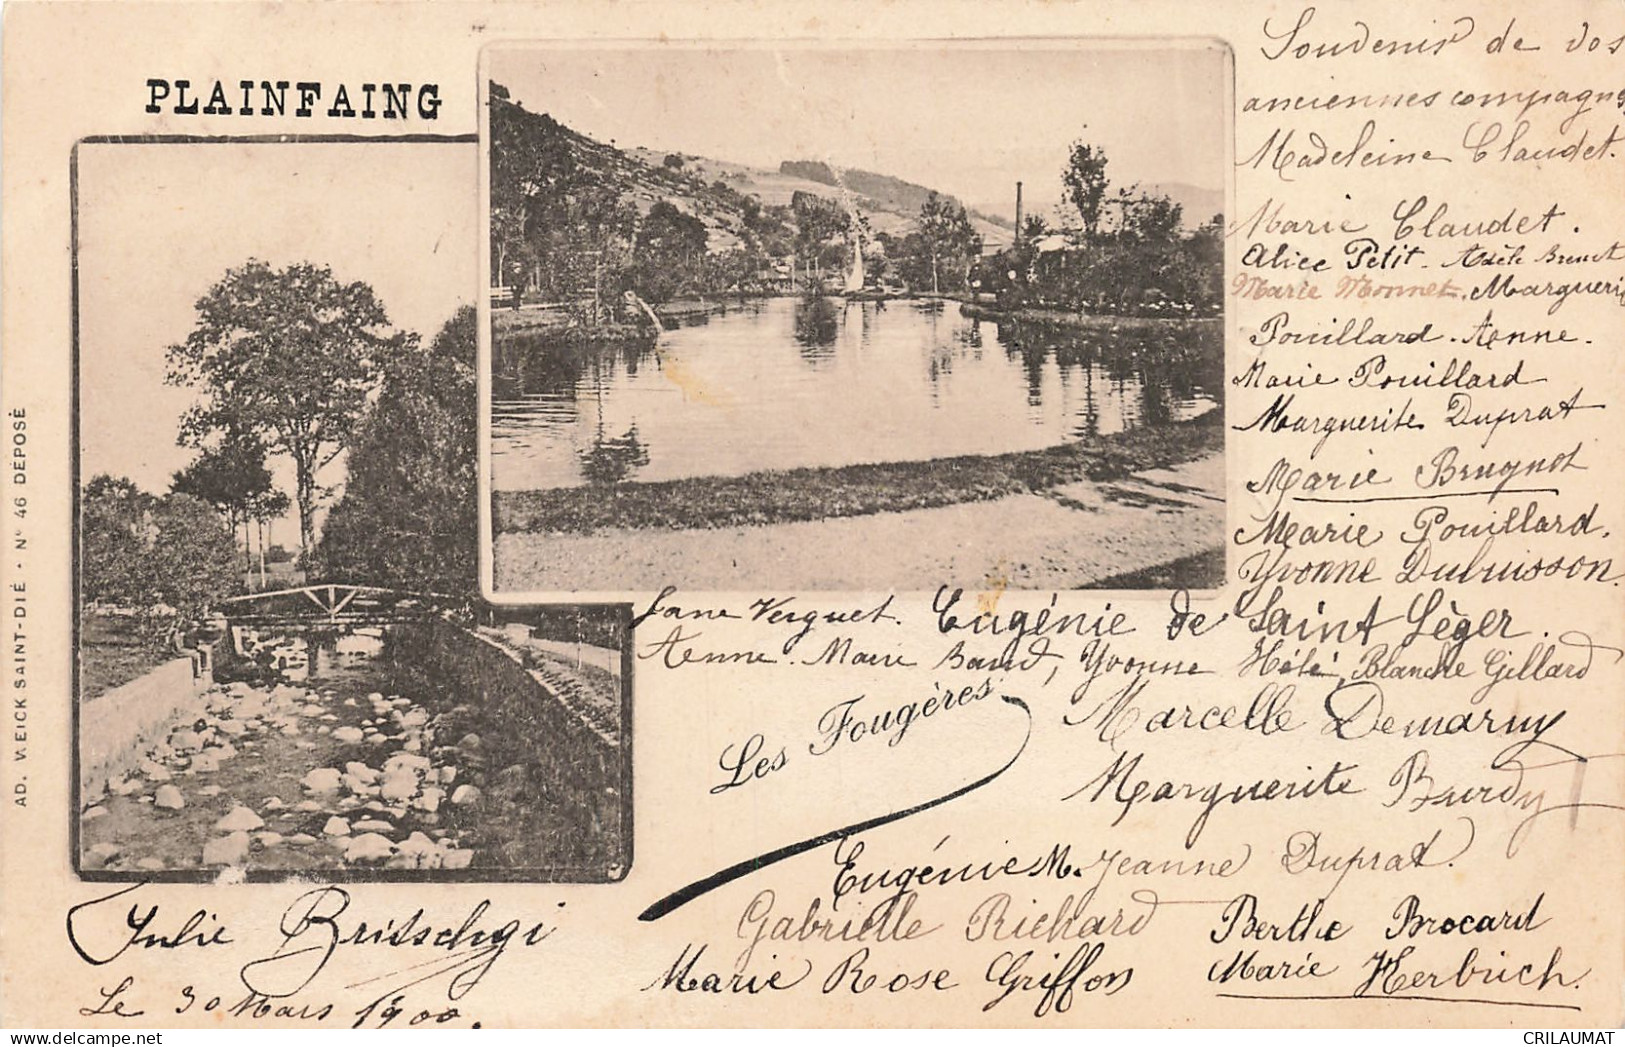 PLAINFAING
Souvenir de vos
anciennes compagnes
Madeleine Claudet.
Marie Claudet.
Alice Petit. Adèle
Marie Monnet. Marguerite
Pouillard. Aenne.
Marie Pouillard
Marguerite Duprat
Marie Brugnot
Marie Pouillard.
Yvonne Dubuisson.
Jane Verguet. Eugénie de Saint Léger.
Aenne. Marie Yvonne Blanche Gillard
Les Fougères
Marcelle Demarny
Marguerite Burdy
Eugénie M. Jeanne Duprat.
Gabrielle Richard Berthe Brocard
Marie Rose Griffon Marie Herbrich.
Julie Britschgi
Le 30 Mars 1900.
AD. WEICK SAINT-DIÉ • N° 46 DÉPOSÉ
delcampe.net
CRILAUMAT